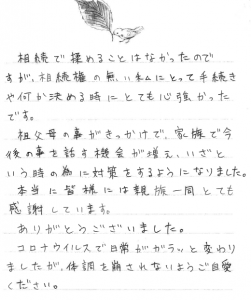 相続で揉めることはなかったので
すが、相続権の無い私にとって手続き
や何か決める時にとても心強かった
です。
祖父母の事がきっかけで、家族で今
後の事を話す機会が増え、いざと
いう時の為に対策をするようになりました。
本当に皆様には親族一同とても
感謝しています。
ありがとうございました。
コロナウイルスで日常がガラッと変わり
ましたが、体調を崩されないようご自愛
ください。